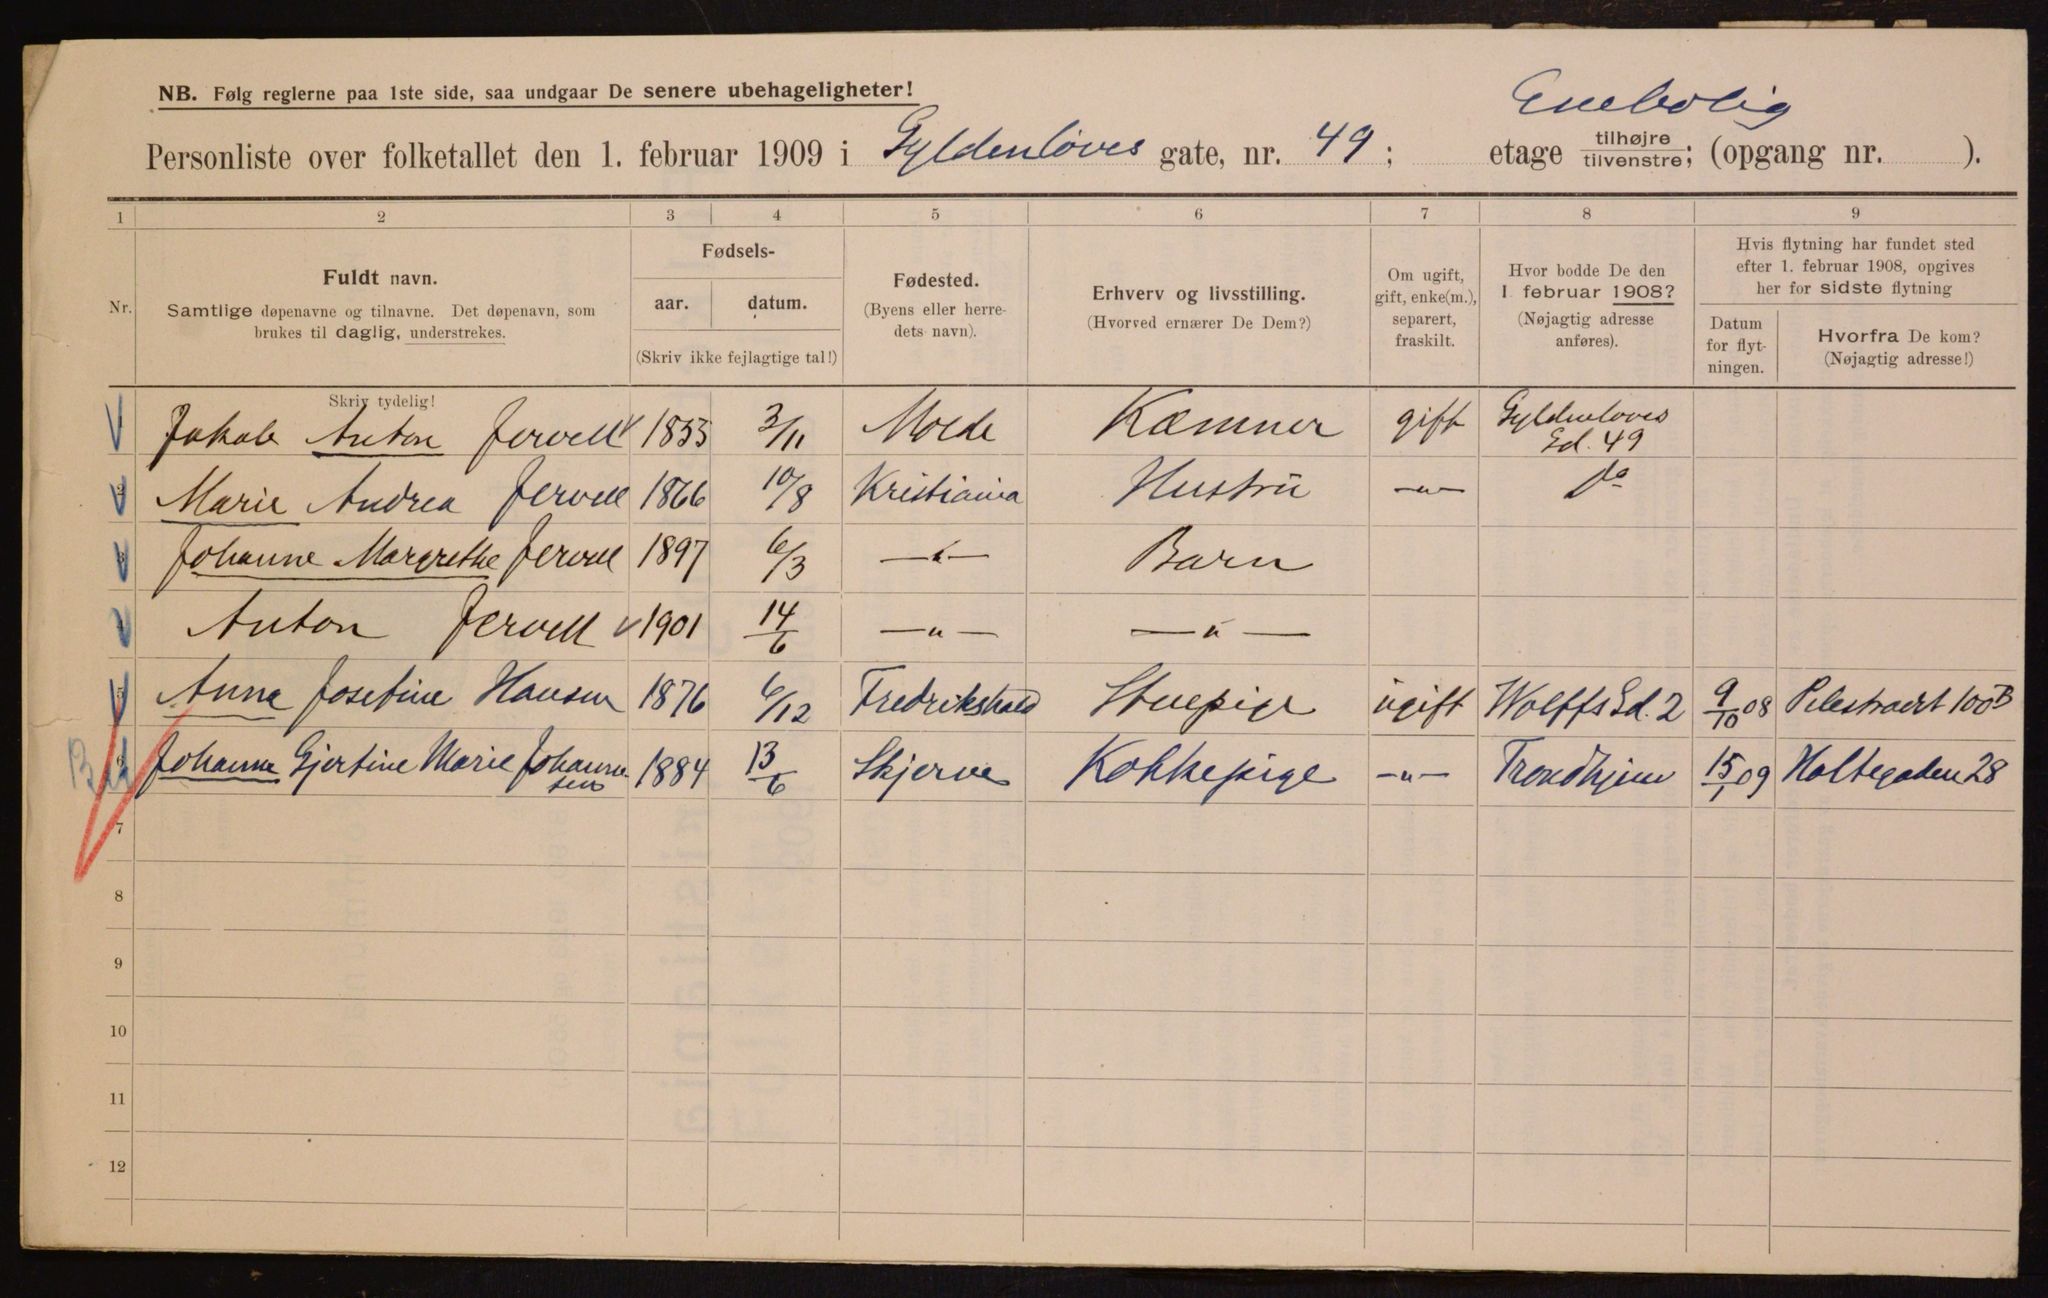 NB. Følg reglerne paa 1ste side, saa undgaar De senere ubehageligheter!
Enebolig
Personliste over folketallet den 1. februar 1909 i Gyldenløves gate, nr. 49; etage tilhøjre tilvenstre; (opgang nr. ).
1 2 3 4 5 6 7 8 9
Nr.
Fuldt navn.
Samtlige døpenavne og tilnavne. Det døpenavn, som
brukes til daglig, understrekes.
Fødsels-
aar. datum.
(Skriv ikke fejlagtige tal!)
Fødested.
(Byens eller herre-
dets navn).
Erhverv og livsstilling.
(Hvorved ernærer De Dem?)
Om ugift,
gift, enke(m.),
separert,
fraskilt.
Hvor bodde De den
1. februar 1908?
(Nøjagtig adresse
anføres).
Hvis flytning har fundet sted
efter 1. februar 1908, opgives
her for sidste flytning
Datum
for flyt-
ningen.
Hvorfra De kom?
(Nøjagtig adresse!)
Skriv tydelig!
Jakob Anton Jervell 1853 3/11 Molde Kæmner gift Gyldenløves
Gd. 49
2 Marie Andrea Jervell 1866 10/8 Kristiania Hustru —"— Do
3 Johanne Margrethe Jervell 1897 6/3 —"— Barn
4 Anton Jervell 1901 14/6 —"— —"—
5 Anna Josefine Hansen 1876 6/12 Fredrikshald Stuepige ugift Wolffs Gd. 2 9/10 08 Pilestrædet 100B
6 Johanne Gjertine Marie Johanne
sen 1884 13/6 Skjerve Kokkepige —"— Trondhjem 15/1 09 Holtegaden 28
7
8
9
10
11
12